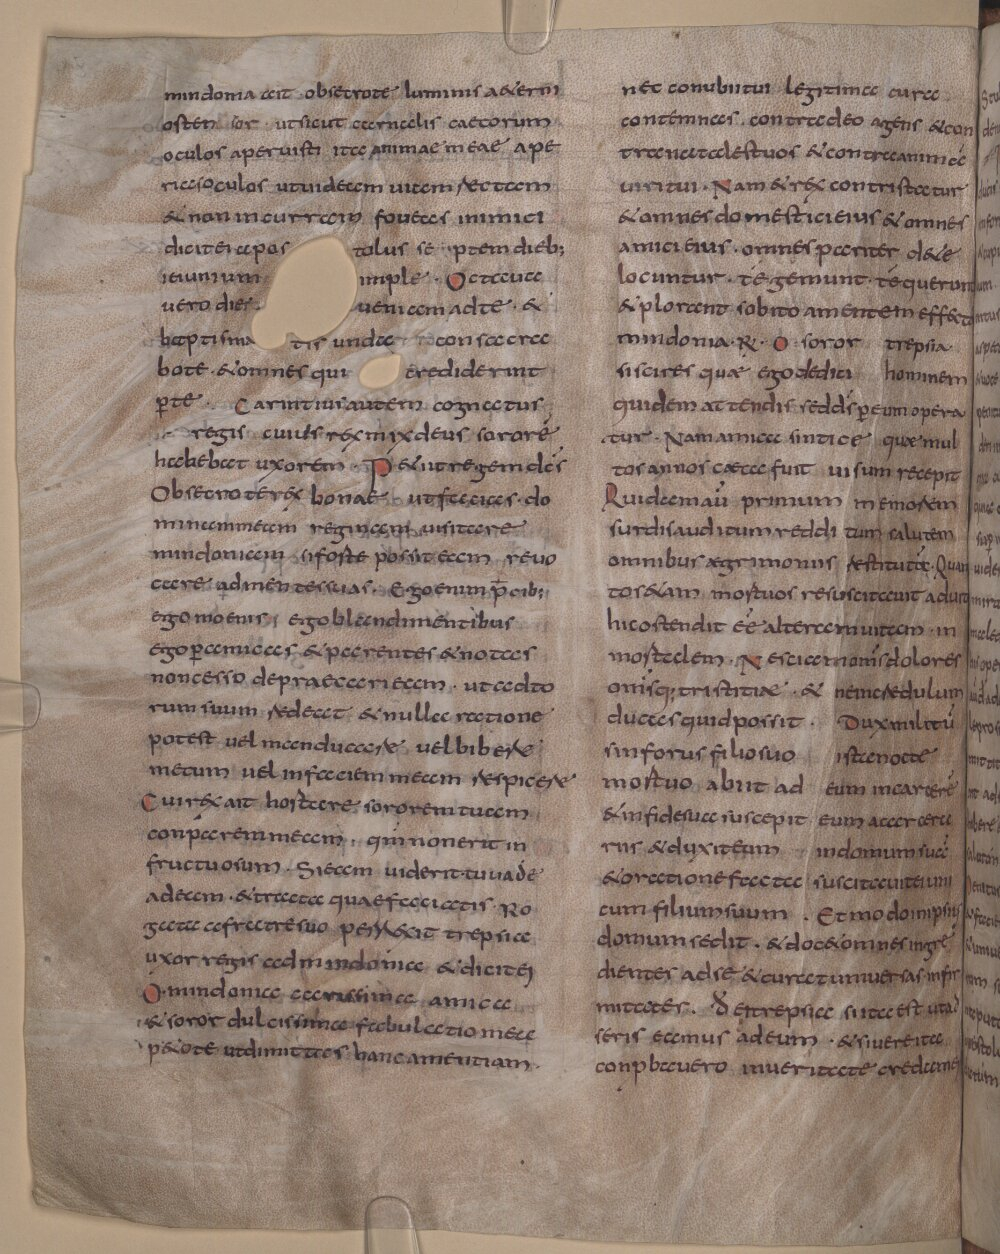 mindonia ait obsecrote luminis aeterni
osten sor utsicut carnalis caecorum
oculos aperuisti itaanimaemeae ape
riasoculos utuideam uiam rectam
&nonincurram foueas inimici
dicitei apos tolus septemdieb;
ieiunium imple. Octaua
uero die ueniam adte. &
baptisma tis unda consecra
bote. &omnes qui crediderint
p̱te. Carintiusautem cognatus
regis cuius réx mixdeus sororé
habebat uxorem. P&iitregemdc̄s
Obsecroteréx bonae utfacias do
minammeam reginam uisitare
mindoniam siforte possit eam reuo
care admentessuas. Egoenim p̄cib;
egomoenis, egoblandimentibus
egop̱amicas &parentes &notas
noncesso depraecariaeam. utaddo
rumsuum redeat &nulla ratione
potest uel manducare uelbibere
mecum uel infaciemmeam respicere
Cuiréx ait hortare sororemtuam
conparemmeam. quinonerit in
fructuosum. Sieam uiderit.tuuade
adeam. &tracta quaefaciatis. Ro
gata afratresuo perrexit trepsia
uxor regis admindonia &diciteị
O.mindonia carissima amica
&soror dulcissima fabulatio mea
p&ote utdimittas hanc amentiam.
nec conubiitui legitima cura
contemnas. contradeo agens &con
tranatalestuos &contraanimae
uiritui. Nam &réx contristatur
&omnesdomesticieius &omnes
amici eius. omnespariter dete
locuntur. tegemunt tequerun
&plorant subito amentem effecta
mindonia. R̄. O soror trepsia
siscires quae egodedici hominem
quidem attendis sedd̄s peumopera
tur. Namamica sintice quae mul
tosannos caeca fuit uisum recepit
Quidamaū primum inemorem
surdisauditum redditum salutem
omnibus aegrimoniis restituit. Quan
tos&iam mortuos resuscitauit aduit
hicostendit eé alteramuitam. in
mortalem. Nesciationis dolores
omisq; tristitiae. & nemcredulum
ducas quidpossit. Duxmilitū
sinforus filiosuo istanocte
mortuo abiit ad eum incarcere
&infidesua suscepit eum accarcera
rus &duxiteum indomumsuā
&orationefacta suscitauiteum
cum filiumsuum. Etmodoinipsius
domum sedit. &doc&omnes ingre
dientes adse &curatuniuersas infir
mitates. d̄ eitrepsia siita est utad
seris eamus adeum. &siuereita
conpbauero inueritate credamei